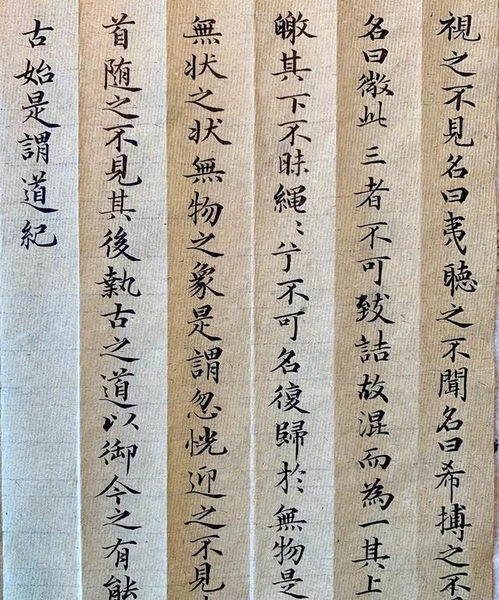 視之不見名曰夷聴之不聞名曰希搏之不
名曰微此三者不可致詰故混而為一其上
皦其下不昧繩〻兮不可名復歸於無物是
無状之状無物之象是謂忽恍迎之不見
首随之不見其後執古之道以御今之有能
古始是謂道紀